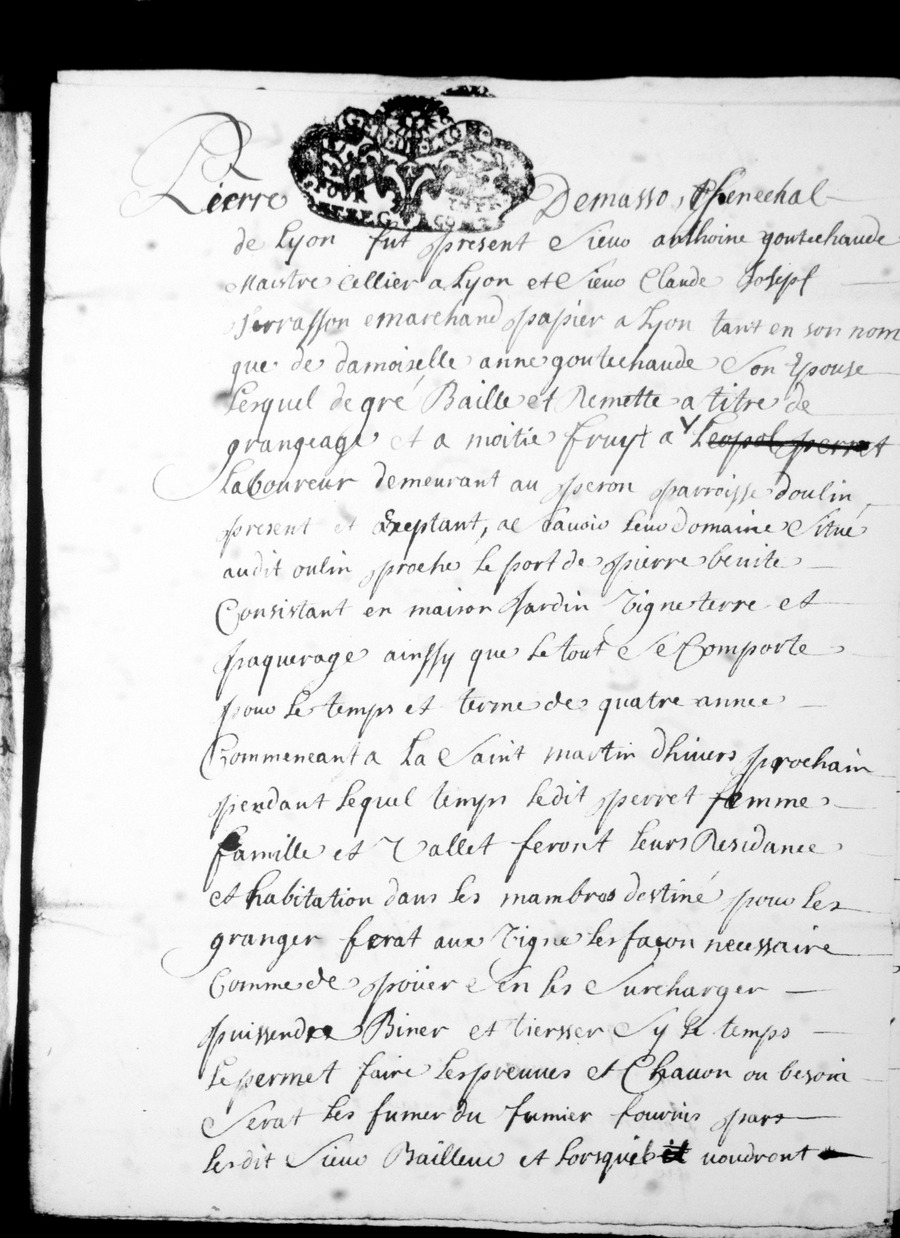 Pierre Demasso, Senechal
de Lyon fut present Sieur anthoine goutechaude
Maistre Cellier a Lyon et Sieur Claude Joseph
Terrasson emarchand papier a Lyon tant en son nom
que de damoiselle anne goutechaude Son Epouse
Lesquel de gré Baille et Remette a titre de
grangeage et a moitié fruyt a Leopol perret
Laboureur demeurant au peron parroisse doulin
present et Exeptant, ae Sauoir leur Domaine Situé
audit oulin proche le port de pierre benite
Consistant en maison Jardin Vigne terre et
paquerage ainssy que le tout Se Comporte
pour le temps et terme de quatre annee
Commencant a La Saint martin dhiuers prochain
pendant lequel temps ledit perret femme
famille et Vallet feront leurs Residance
et habitation dans les mambres destiné pour les
granger ferat aux Vigne les façon necessaire
Comme de poüer Sen les Surcharger
puissendre Biner et tiersser Sy le temps
le permet faire les preuues et Chauon ou besoin
Serat les fumer du fumier fournis pars
lesdit Sieur Bailleur et lorsquil uoudront